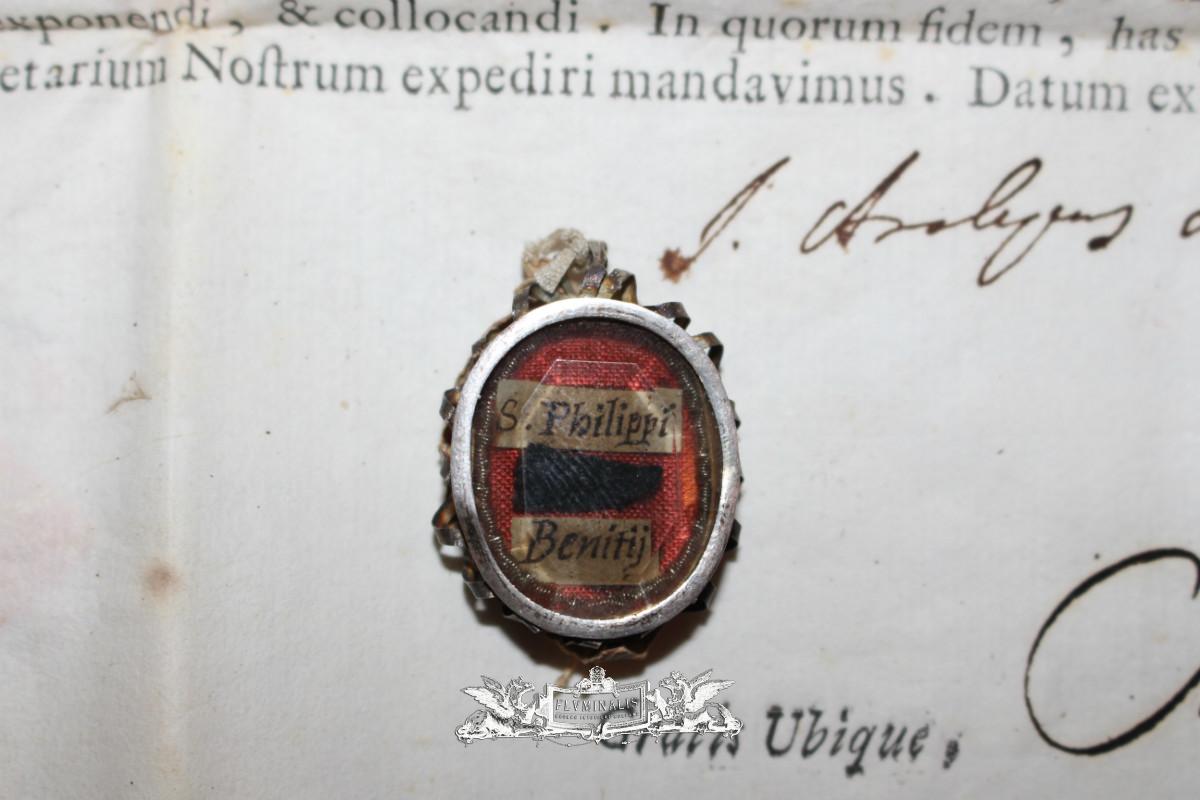 exponendi, & collocandi. In quorum fidem, has
etarium Noſtrum expediri mandavimus. Datum ex
S. Philippi
Benitij
FLVMINALIS
Gratis Ubique,